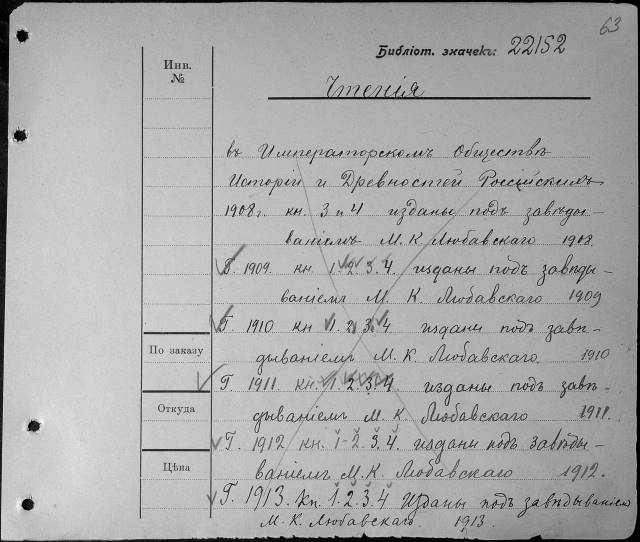 63
Библіот. значекъ: 22152
Инв.
№
Чтенія
въ Императорскомъ Обществѣ
Исторіи и Древностей Россійскихъ
1908 г. кн. 3 и 4 изданы подъ завѣды-
ваніемъ М. К Любавскаго 1908.
Г. 1909. кн 1.2.3.4. изданы подъ завѣды-
ваніемъ М. К. Любавскаго 1909
Г. 1910 кн 1. 2. 3. 4 изданы подъ завѣ-
дываніемъ М. К. Любавскаго. 1910
По заказу
Г. 1911 кн. 1. 2. 3. 4 изданы подъ завѣ-
дываніемъ М. К. Любавскаго 1911.
Откуда
Г. 1912 кн. 1-2. 3. 4. издани подъ завѣды-
ваніемъ М. К. Любавскаго 1912.
Цѣна
Г. 1913. Кн. 1. 2. 3. 4 Изданы подъ завѣдываніем
М. К. Любавскаго. 1913.